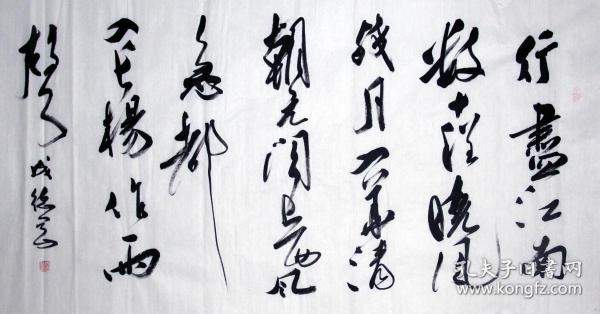 行盡江南
數十程曉風
殘月入華清
朝元閣上西風
急都
入長楊作雨
孔夫子旧书网
www.kongfz.com